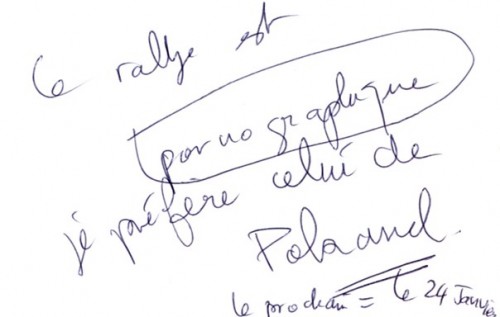 Le rallye est
pornographique
je préfère celui de
le prochain = le 24 Janvier